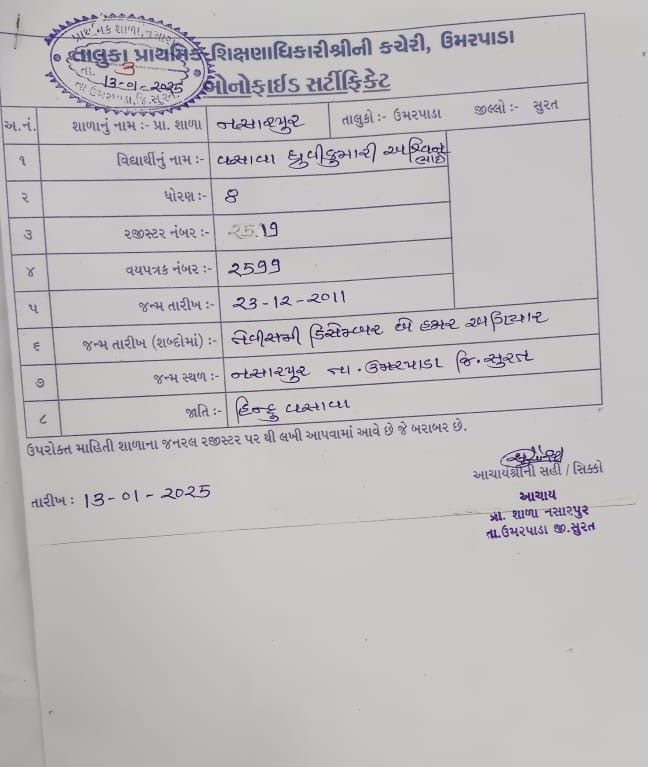 પ્રાથમિક શાળા, નસારપુર
તા. 3
13-01-2025
તા ઉમરપાડા, જિ.સુરત
તાલુકા પ્રાથમિક શિક્ષણાધિકારીશ્રીની કચેરી, ઉમરપાડા
બોનોફાઈડ સર્ટીફિકેટ
અ.નં. શાળાનું નામ :- પ્રા. શાળા નસારપુર તાલુકો :- ઉમરપાડા જીલ્લો :- સુરત
૧ વિદ્યાર્થીનું નામ :- વસાવા ધ્રુવીકુમારી અશ્વિનભાઈ
૨ ધોરણ :- 8
૩ રજીસ્ટર નંબર :- 25.19
૪ વયપત્રક નંબર :- 2599
૫ જન્મ તારીખ :- 23-12-2011
૬ જન્મ તારીખ (શબ્દોમાં) :- ત્રેવીસમી ડિસેમ્બર બે હજાર અગિયાર
૭ જન્મ સ્થળ :- નસારપુર તા. ઉમરપાડા જિ. સુરત
૮ જાતિ :- હિન્દુ વસાવા
ઉપરોક્ત માહિતી શાળાના જનરલ રજીસ્ટર પર થી લખી આપવામાં આવે છે જે બરાબર છે.
તારીખ : 13-01-2025
આચાર્યશ્રીની સહી / સિક્કો
આચાર્ય
પ્રા. શાળા નસારપુર
તા.ઉમરપાડા જી.સુરત